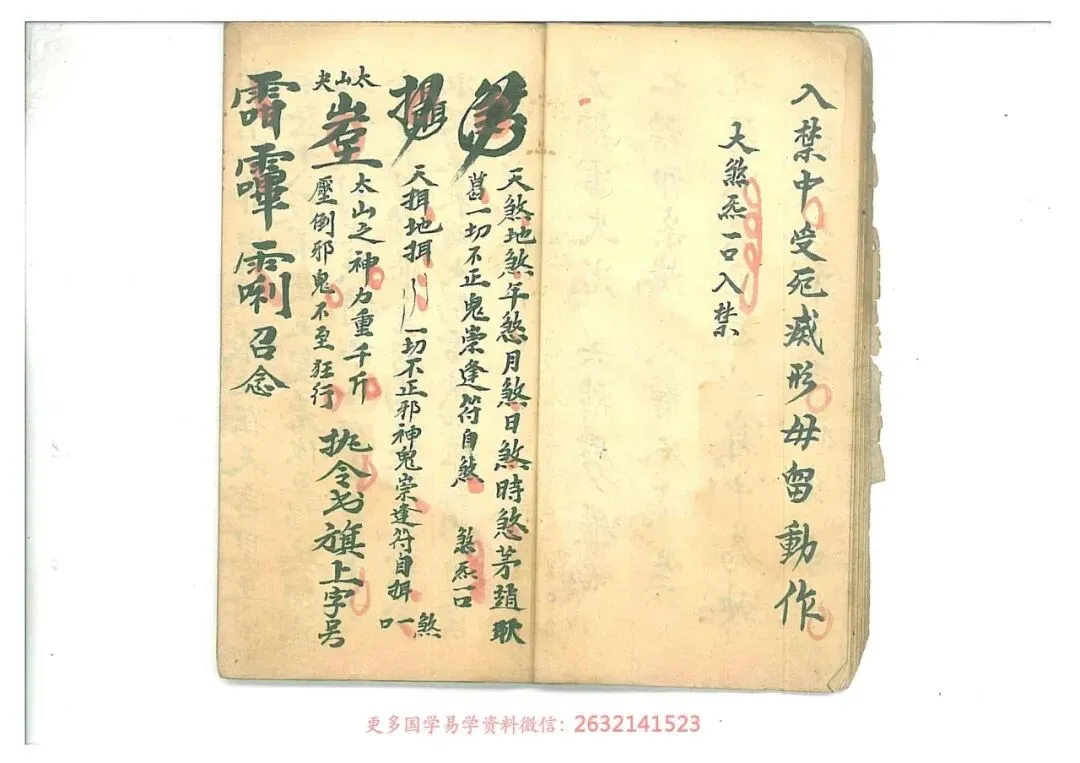 入禁中受死滅形毋留動作
大煞炁一口入禁
天煞地煞年煞月煞日煞時煞茅趙耿
葛一切不正鬼祟逢符自煞 煞炁一口
天揖地揖 一切不正邪神鬼祟逢符自揖 煞一口
太山夫
太山之神力重千斤
壓倒邪鬼不至狂行
令 旗上字号
召念
更多国学易学资料微信：2632141523